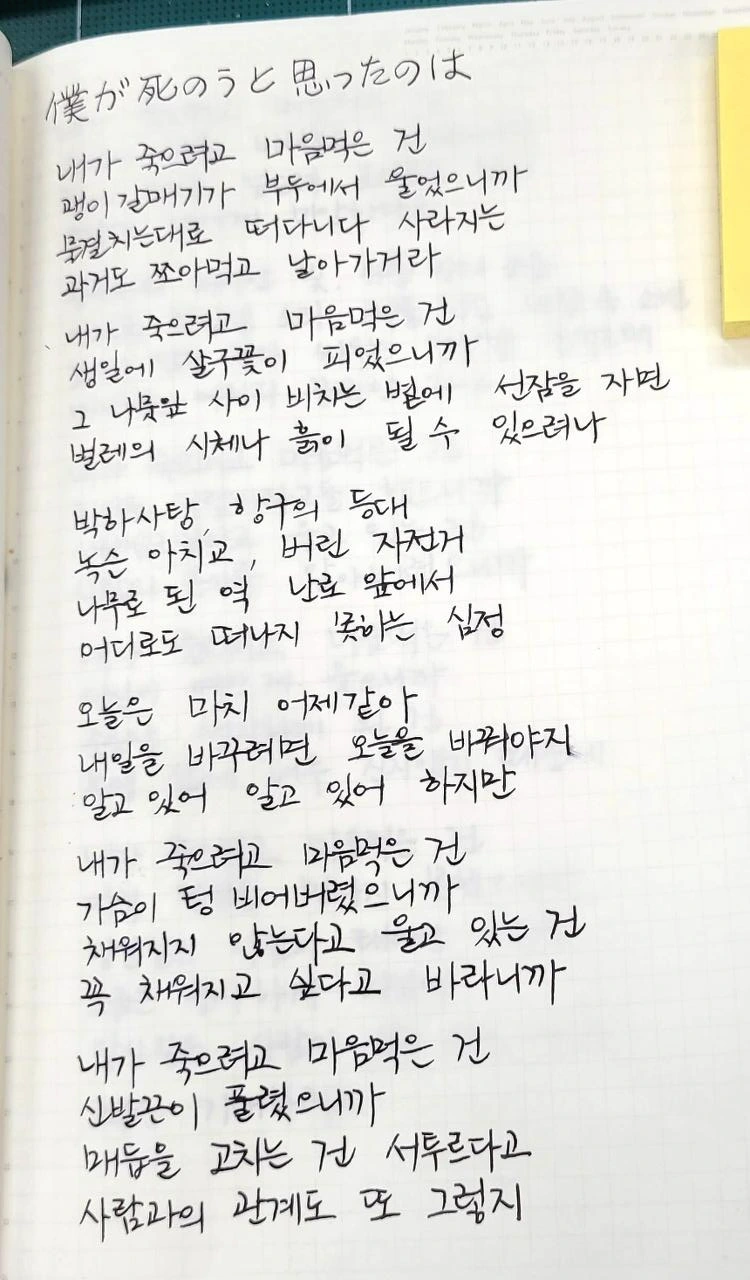 僕が死のうと思ったのは
내가 죽으려고 마음먹은 건
괭이갈매기가 부두에서 울었으니까
물결치는대로 떠다니다 사라지는
과거도 쪼아먹고 날아가거라
내가 죽으려고 마음먹은 건
생일에 살구꽃이 피었으니까
그 나뭇잎 사이 비치는 볕에 선잠을 자면
벌레의 시체나 흙이 될 수 있으려나
박하사탕, 항구의 등대
녹슨 아치교, 버린 자전거
나무로 된 역 난로 앞에서
어디로도 떠나지 못하는 심정
오늘은 마치 어제같아
내일을 바꾸려면 오늘을 바꿔야지
알고 있어 알고 있어 하지만
내가 죽으려고 마음먹은 건
가슴이 텅 비어버렸으니까
채워지지 않는다고 울고 있는 건
꼭 채워지고 싶다고 바라니까
내가 죽으려고 마음먹은 건
신발끈이 풀렸으니까
매듭을 고치는 건 서투르다고
사람과의 관계도 또 그렇지